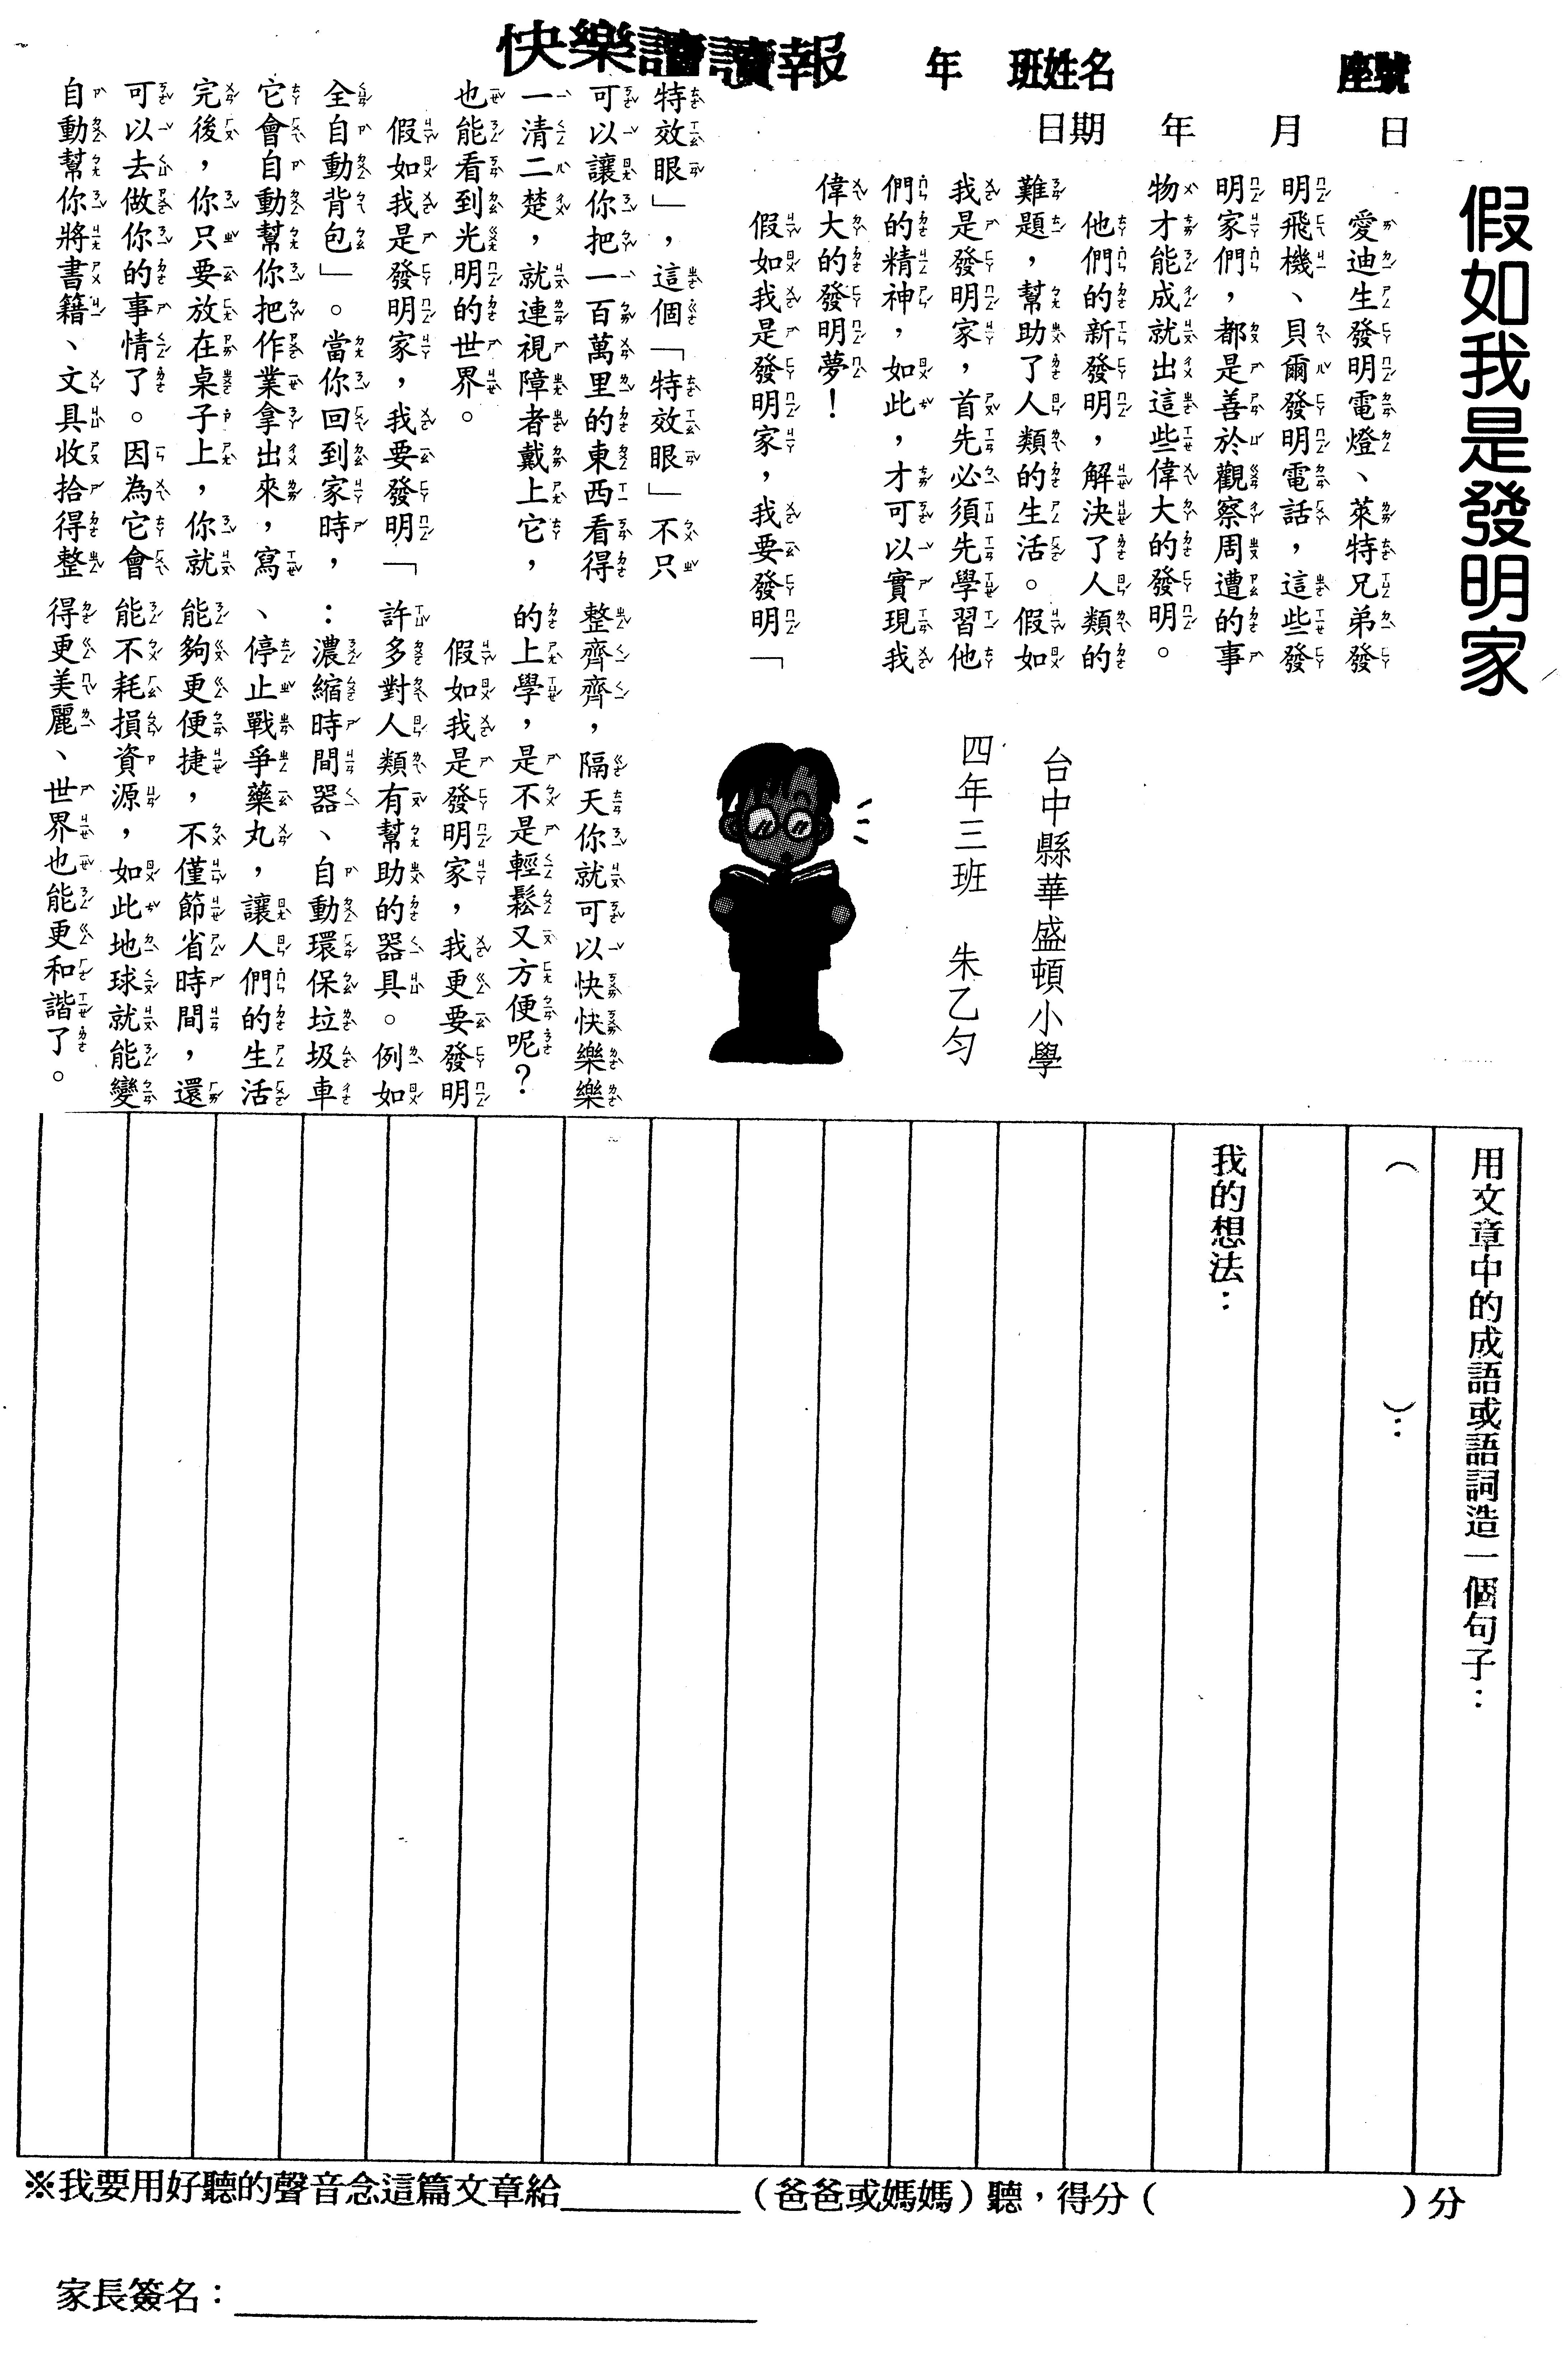 快樂讀讀報
年 班姓名 座號
日期 年 月 日
假如我是發明家
台中縣華盛頓小學
四年三班 朱乙勻
愛迪生發明電燈、萊特兄弟發
明飛機、貝爾發明電話，這些發
明家們，都是善於觀察周遭的事
物才能成就出這些偉大的發明。
他們的新發明，解決了人類的
難題，幫助了人類的生活。假如
我是發明家，首先必須先學習他
們的精神，如此，才可以實現我
偉大的發明夢！
假如我是發明家，我要發明「
特效眼」，這個「特效眼」不只
可以讓你把一百萬里的東西看得
一清二楚，就連視障者戴上它，
也能看到光明的世界。
假如我是發明家，我要發明「
全自動背包」。當你回到家時，
它會自動幫你把作業拿出來，寫
完後，你只要放在桌子上，你就
可以去做你的事情了。因為它會
自動幫你將書籍、文具收拾得整
整齊齊，隔天你就可以快快樂樂
的上學，是不是輕鬆又方便呢？
假如我是發明家，我更要發明
許多對人類有幫助的器具。例如
：濃縮時間器、自動環保垃圾車
、停止戰爭藥丸，讓人們的生活
能夠更便捷，不僅節省時間，還
能不耗損資源，如此地球就能變
得更美麗、世界也能更和諧了。
用文章中的成語或語詞造一個句子：
（ ）：
我的想法：
※我要用好聽的聲音念這篇文章給________（爸爸或媽媽）聽，得分（ ）分
家長簽名：________